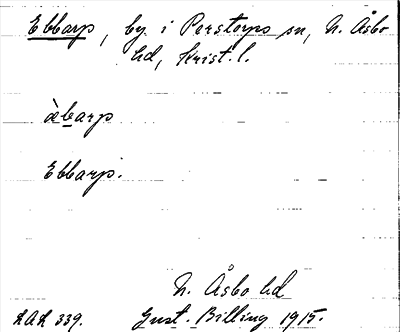 Ebbarp, by i Perstorps sn, N. Åsbo
hd, Krist. l.
àbarp
Ebbarp.
N. Åsbo hd
LAL 339. Gust. Billing 1915.